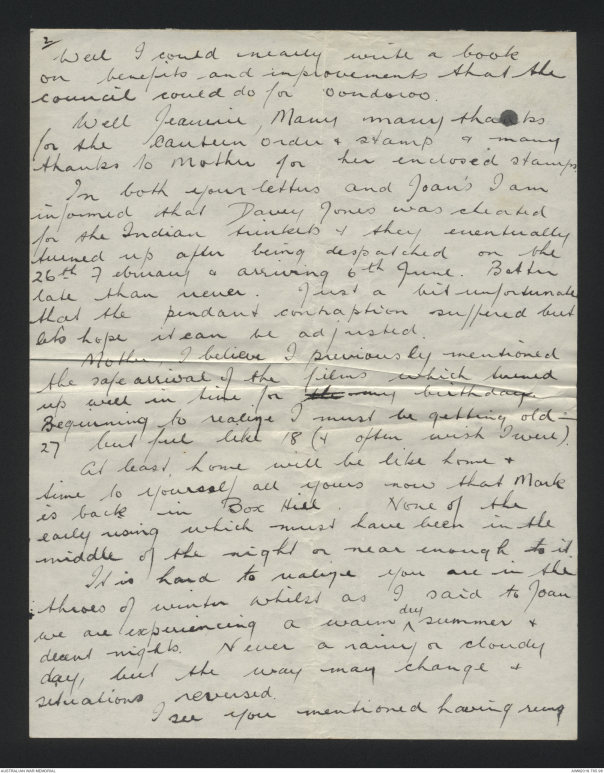 2
Well I could nearly write a book
on benefits and improvements that the
council could do for Oondooroo.
Well Jeannie, Many many thanks
for the canteen order & stamp & many
thanks to Mother for her enclosed stamps
In both your letters and Joan's I am
informed that Davey Jones was cheated
for the Indian trinkets & they eventually
turned up after being despatched on the
26th February & arriving 6th June. Better
late than never. Just a bit unfortunate
that the pendant contraption suffered but
lets hope it can be adjusted.
Mother I believe I previously mentioned
the safe arrival of the films which turned
up well in time for the my birthday.
Beginning to realize I must be getting old –
27 but feel like 18 (& often wish I were).
At least home will be like home &
time to yourself all yours now that Mark
is back in Box Hill. None of the
early rising which must have been in the
middle of the night or near enough to it.
It is hard to realize you are in the
throes of winter whilst as I said to Joan
we are experiencing a warm dry summer &
decent nights. Never a rainy or cloudy
day, but the way may change &
situations reversed.
I see you mentioned having rung
AUSTRALIAN WAR MEMORIAL